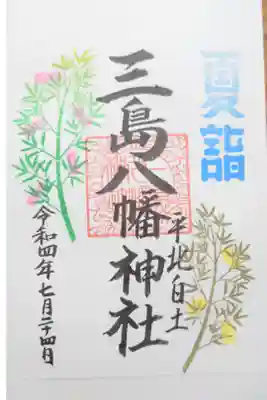 夏詣
平北白土
三島八幡神社
令和四年七月二十四日